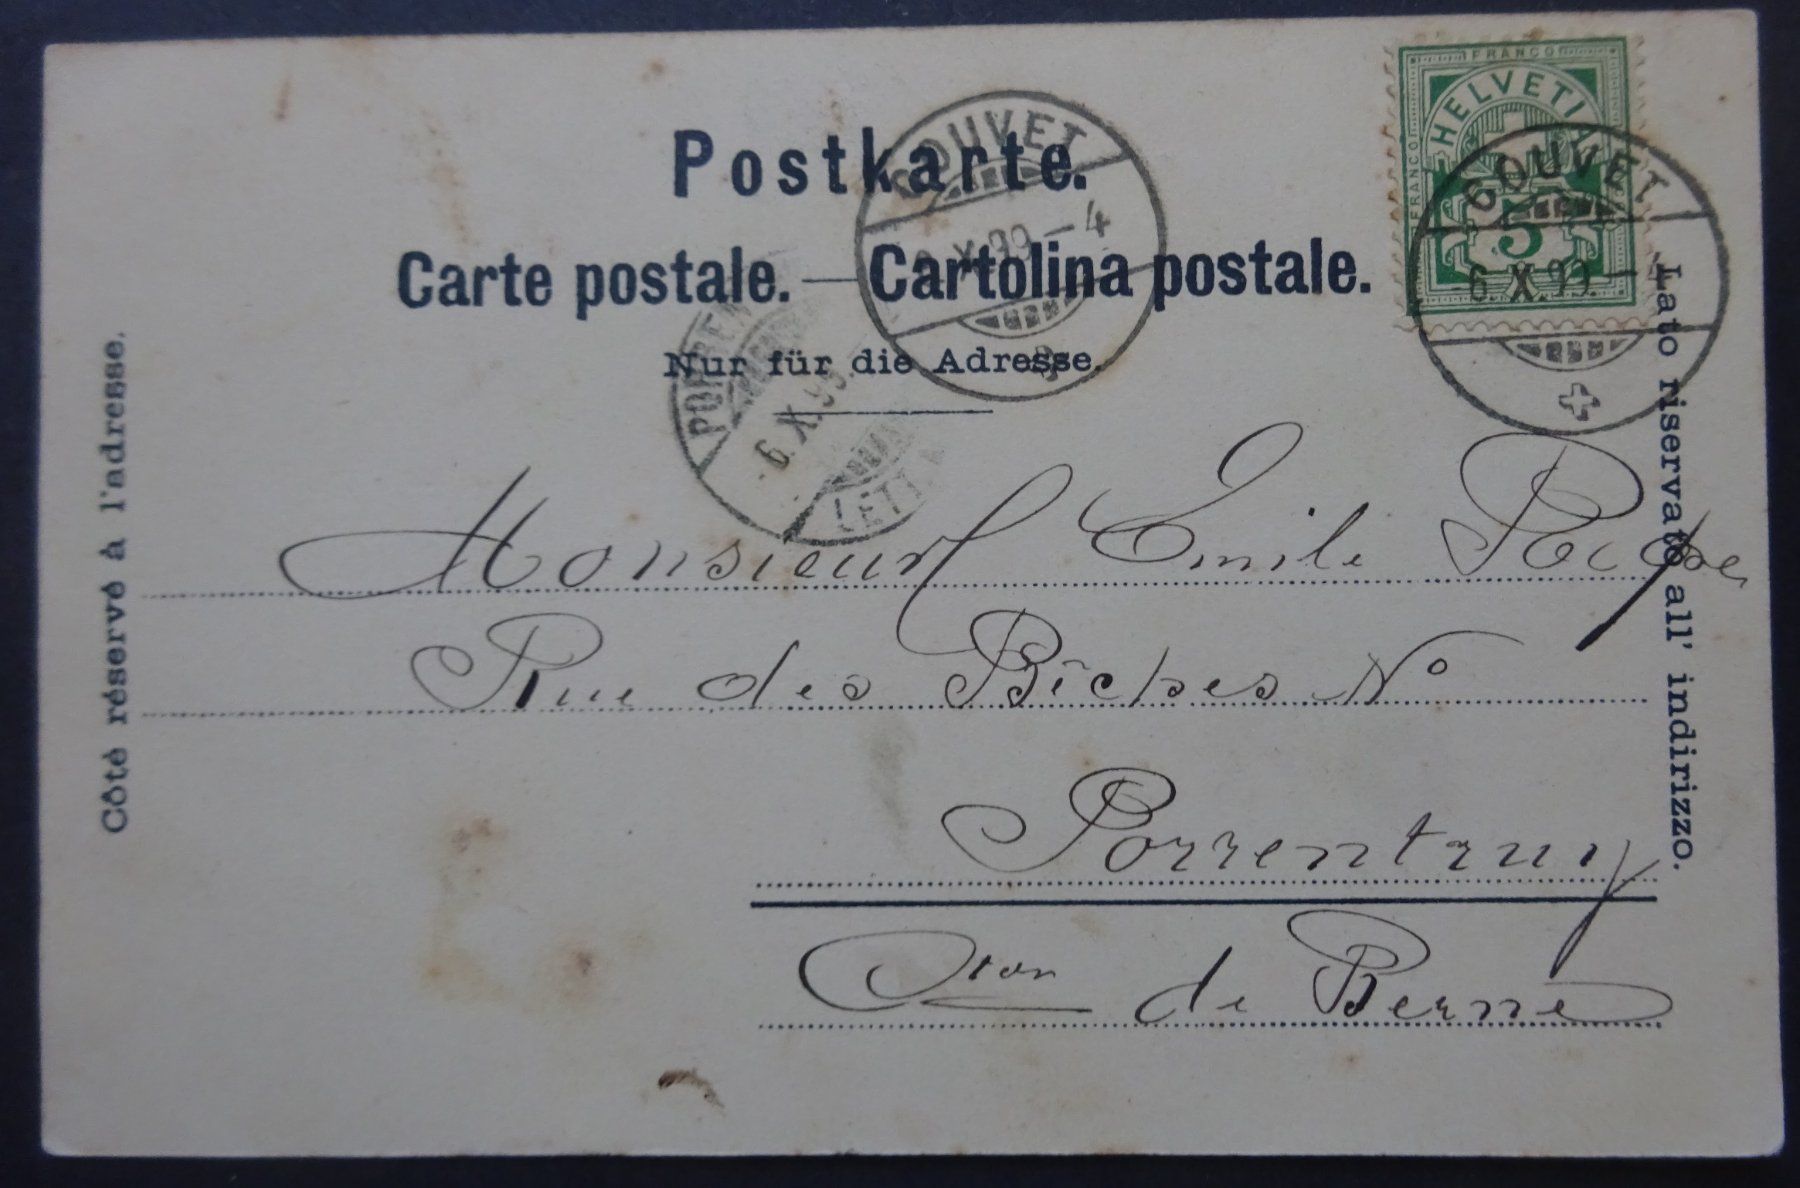 FRANCO
FRANCO
HELVETIA
5
Postkarte.
COUVET
6.X.99.—4
COUVET
X.99—4
Carte postale. — Cartolina postale.
Nur für die Adresse.
6.X.99.
Côté réservé à l'adresse.
Lato riservato all' indirizzo.
Monsieur Emile
Rue des Bîches N°
Porrentruy
Cton de Berne